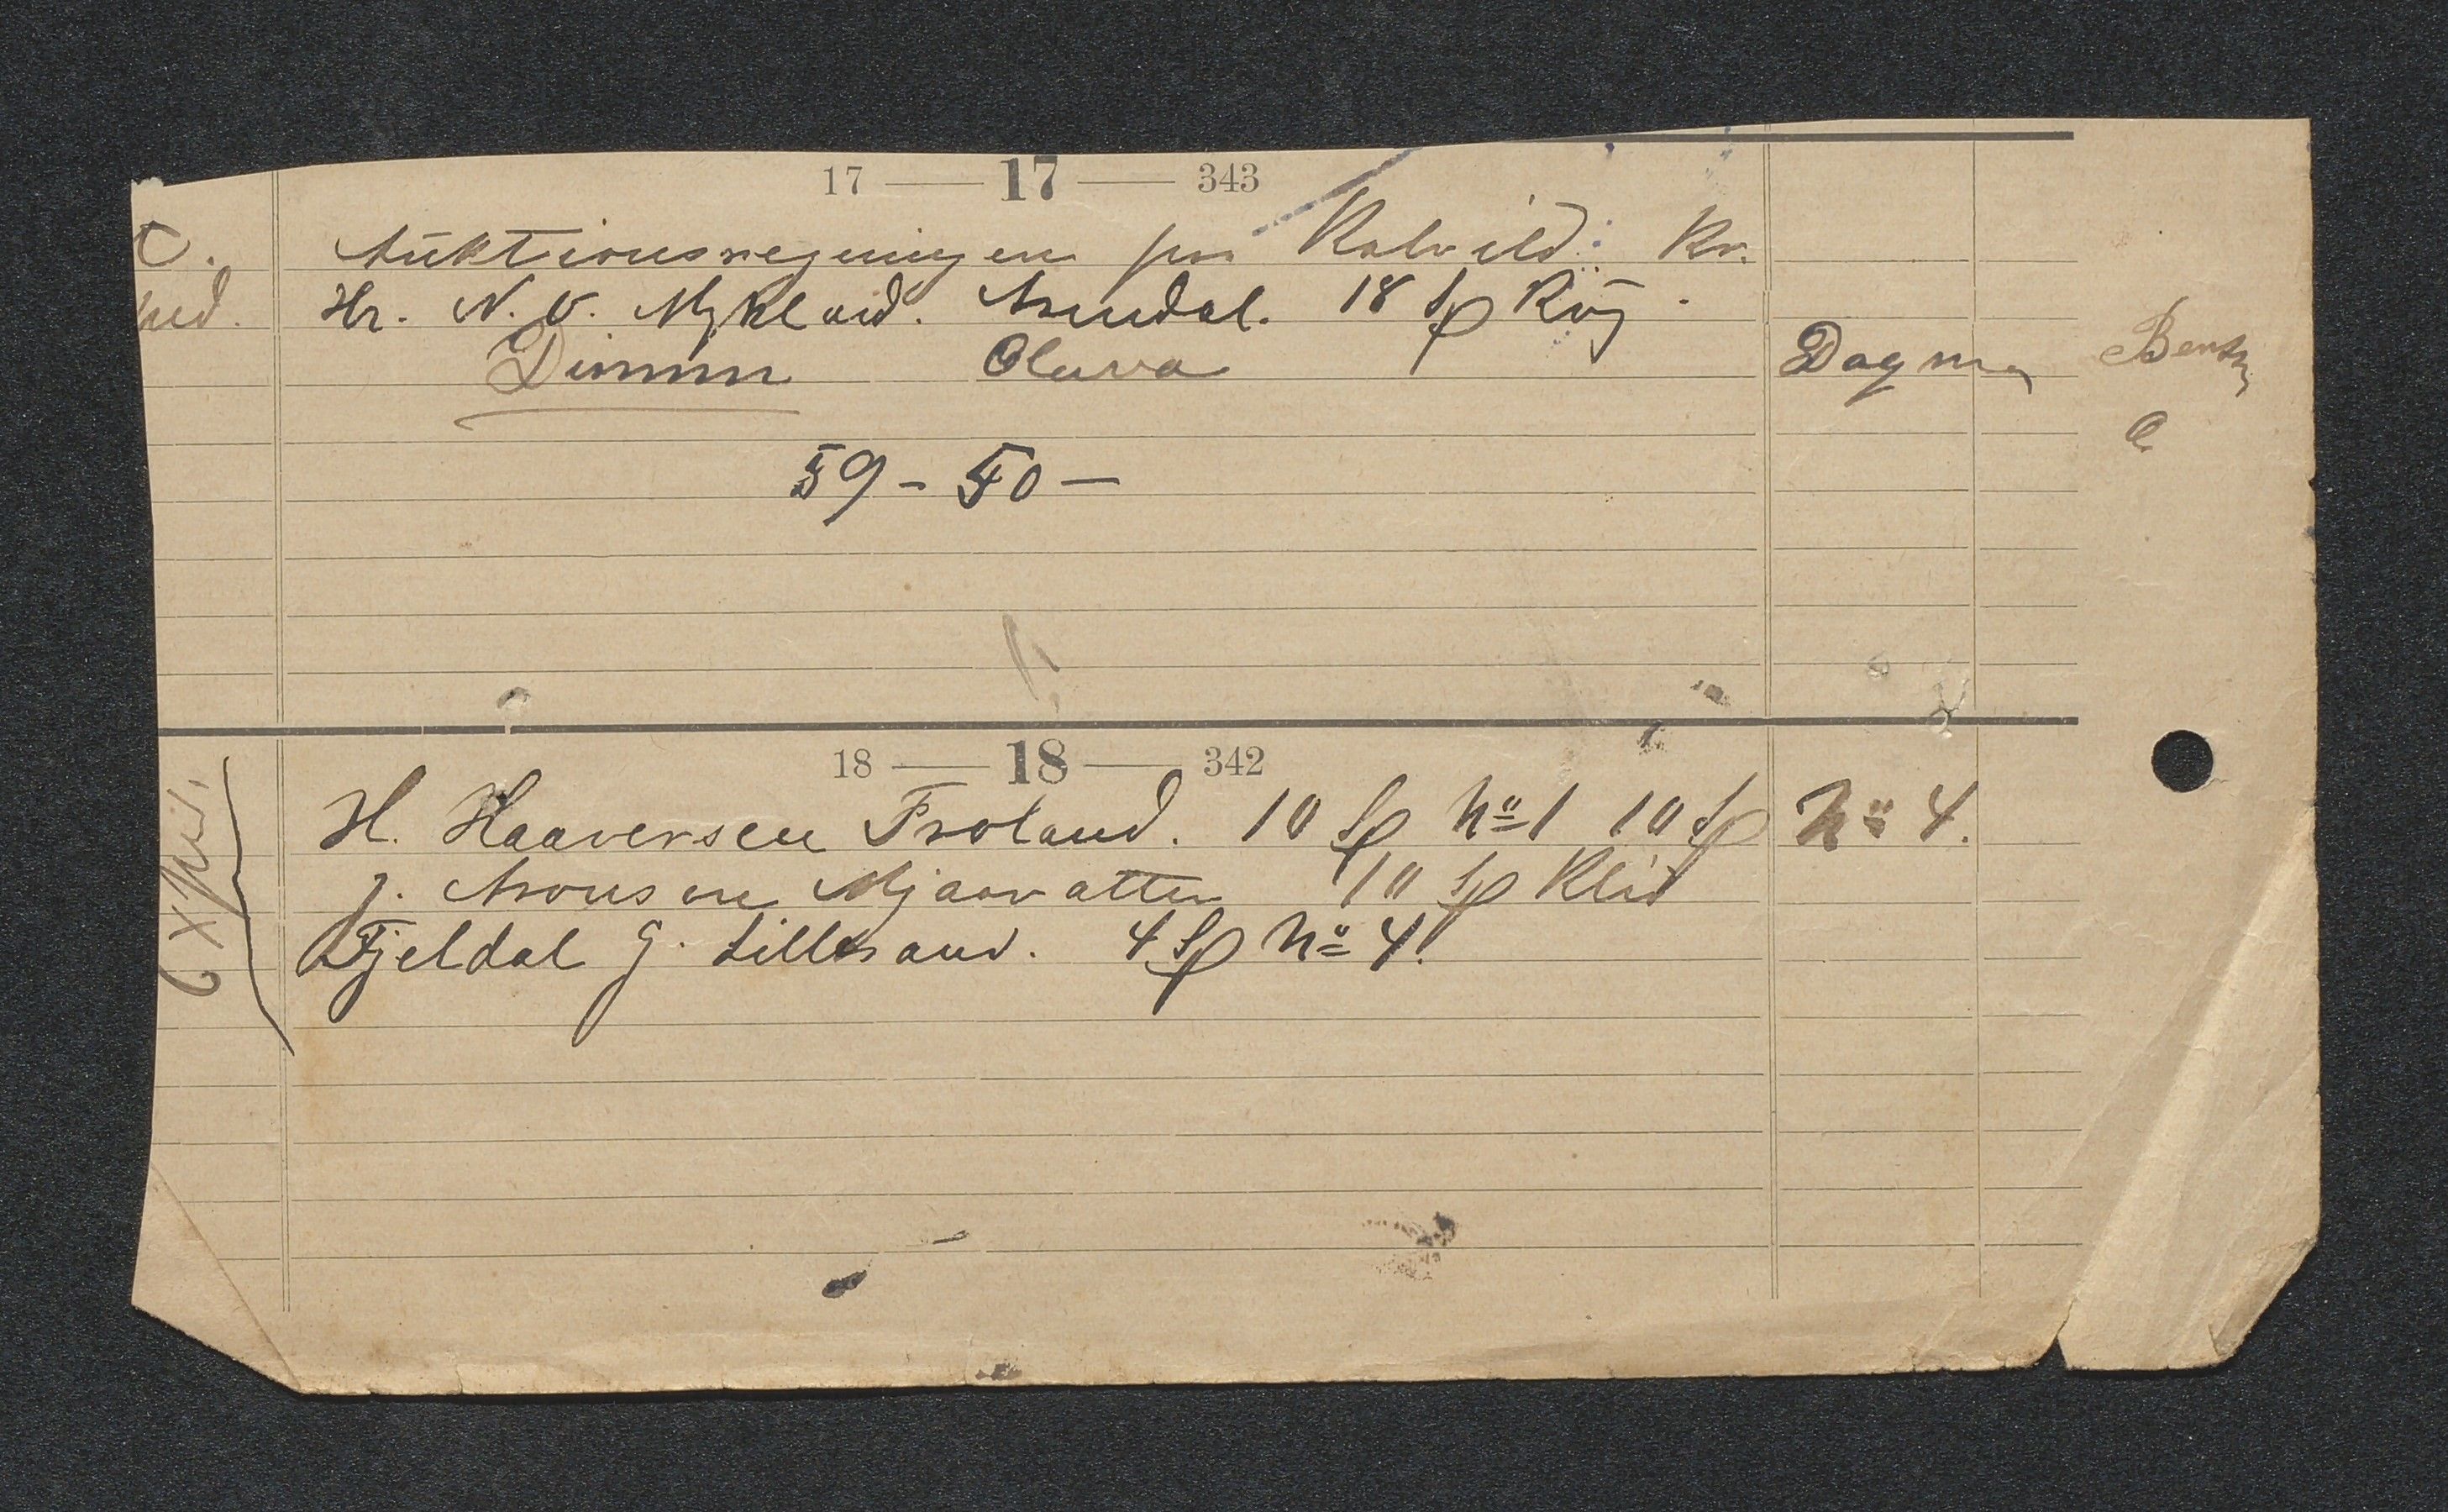 17 — 17 — 343
Auktionsregningen fra Kalvild: Kr.
Hr. N. O. Mykland. Arendal. 18 Sp Rüg.
Dimmen Olava Dagmar
59 - 50 —
18 — 18 — 342
Exped.
H. Haaversen Froland. 10 Sp No 1 10 Sp No 4.
J. Aronsen Mjaavatten 10 Sp Klid
Fjeldal G. Lillesand. 4 Sp No 4.